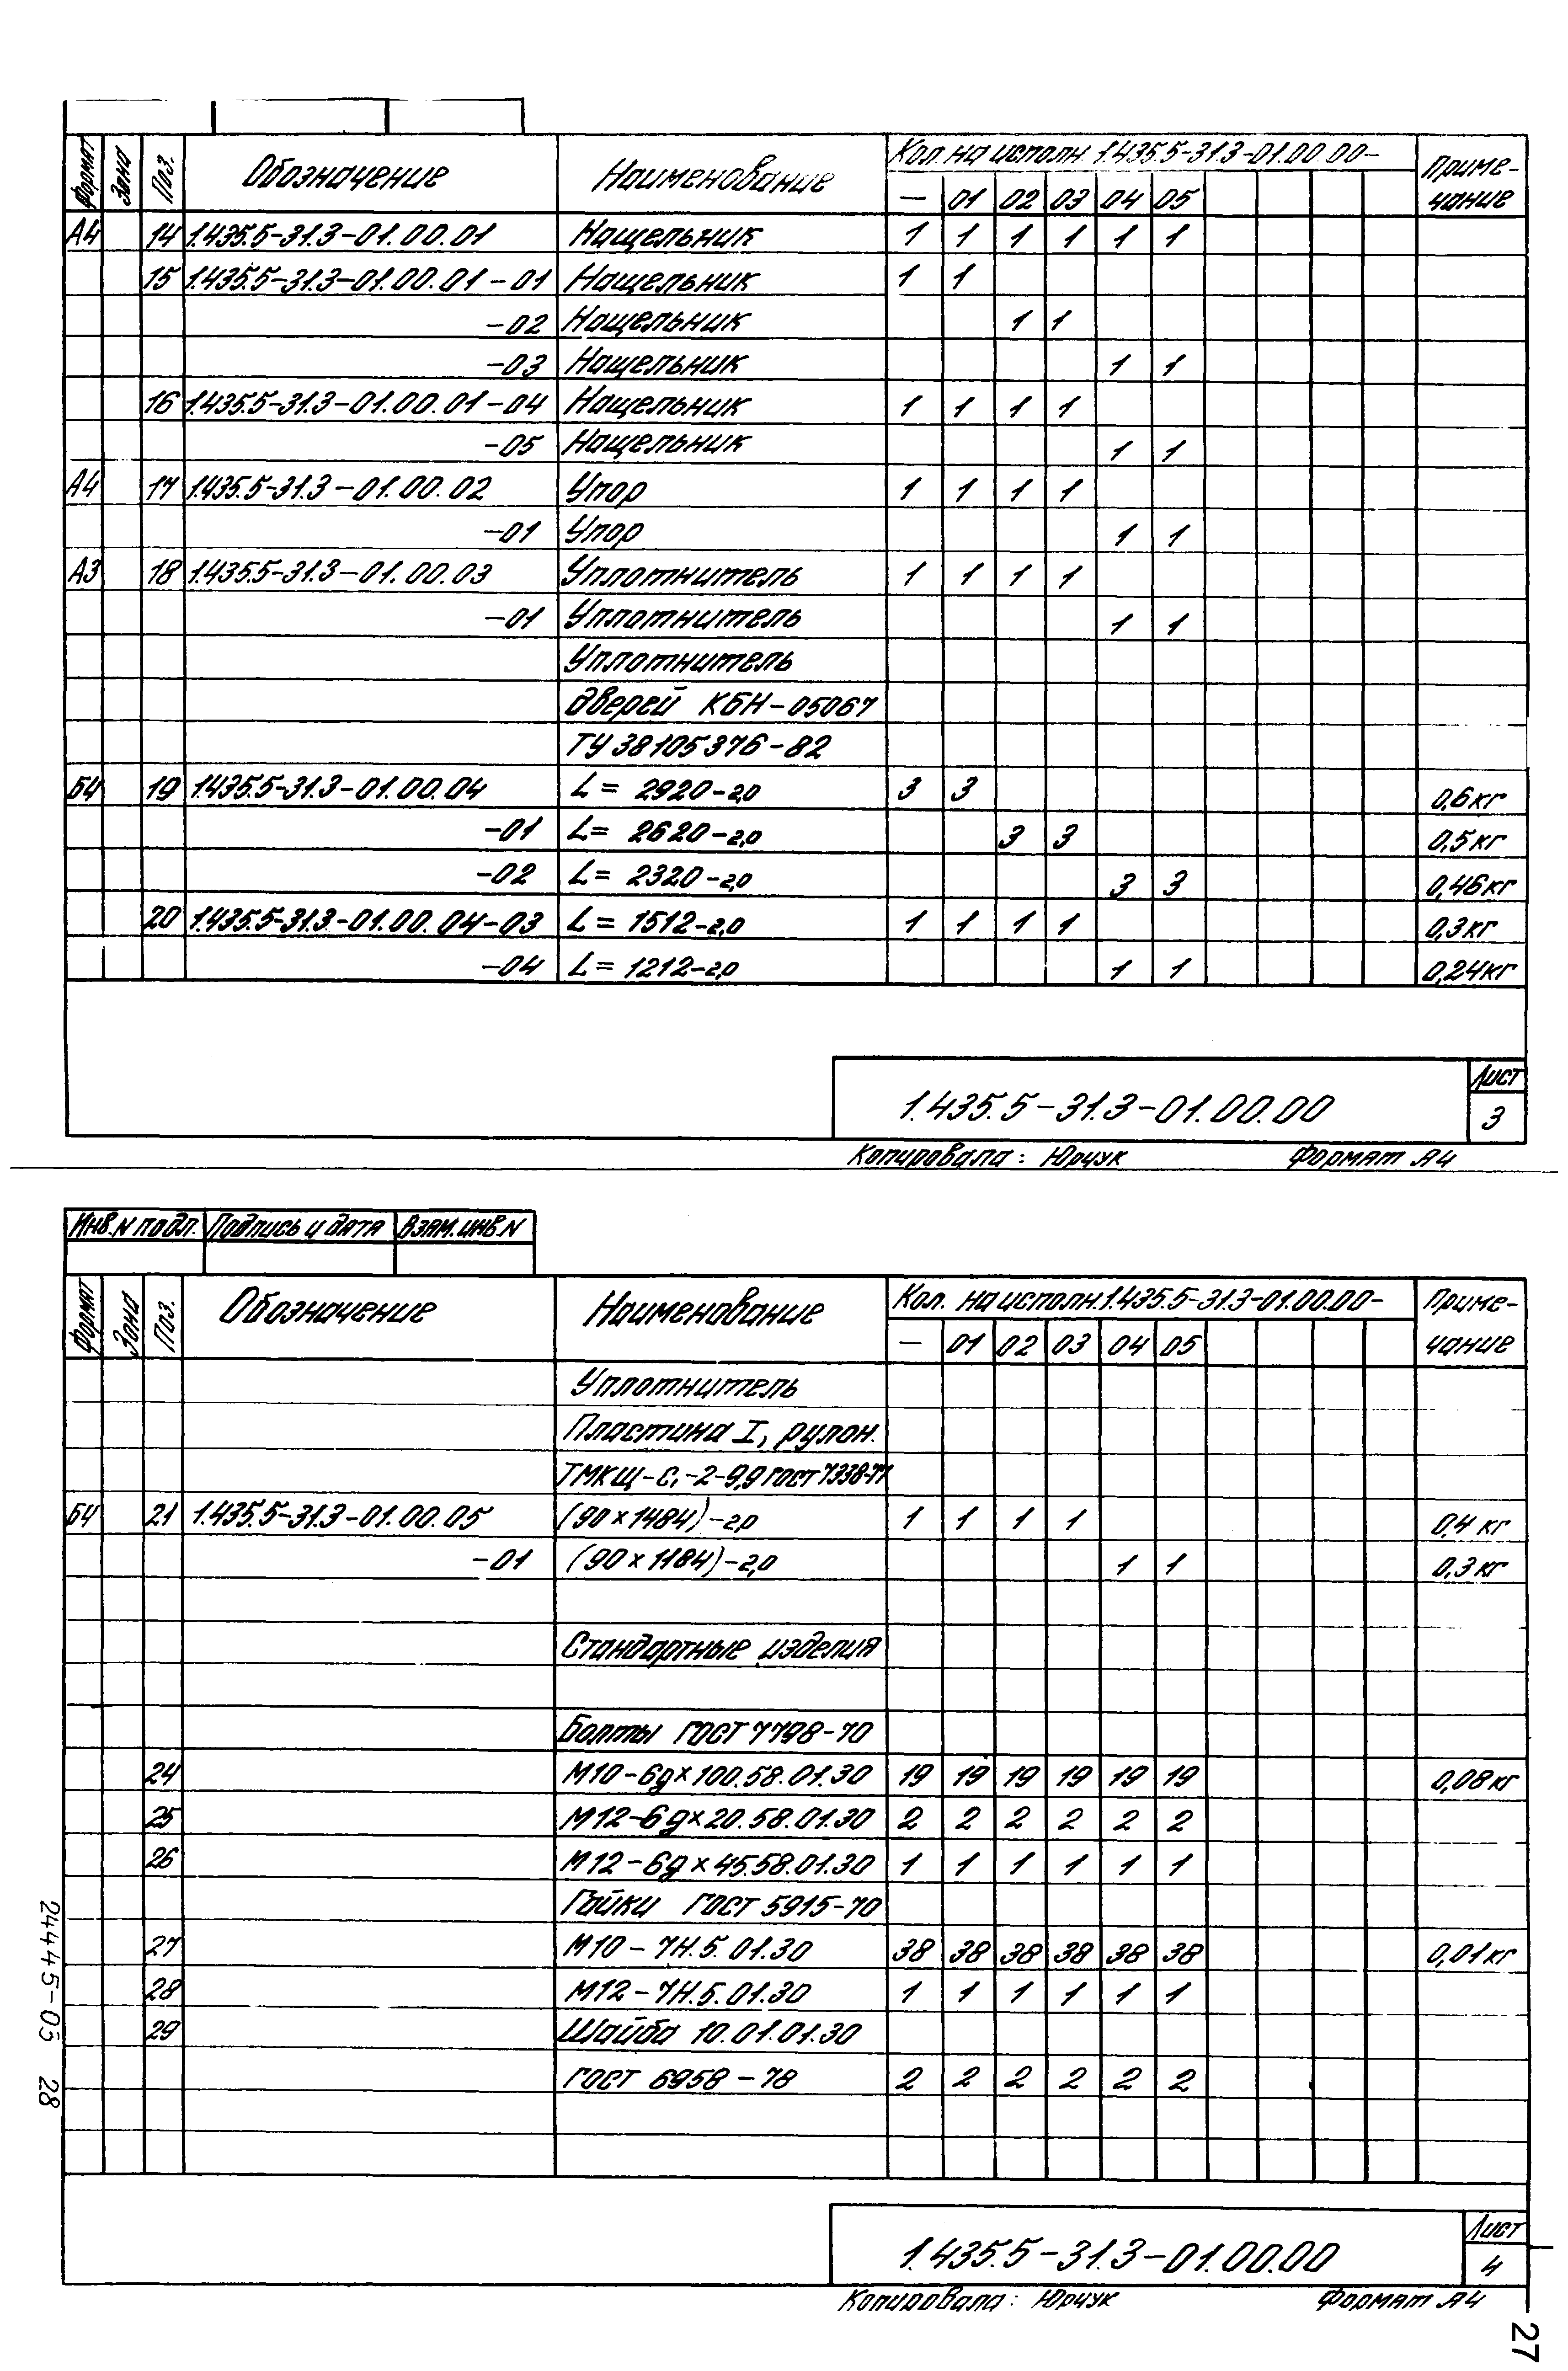 Формат Зона Поз. Обозначение Наименование Кол. на исполн. 1.435.5-31.3-01.00.00- Приме-
— 01 02 03 04 05 чание
А4 14 1.435.5-31.3-01.00.01 Нащельник 1 1 1 1 1 1
15 1.435.5-31.3-01.00.01-01 Нащельник 1 1
-02 Нащельник 1 1
-03 Нащельник 1 1
16 1.435.5-31.3-01.00.01-04 Нащельник 1 1 1 1
-05 Нащельник 1 1
А4 17 1.435.5-31.3-01.00.02 Упор 1 1 1 1
-01 Упор 1 1
А3 18 1.435.5-31.3-01.00.03 Уплотнитель 1 1 1 1
-01 Уплотнитель 1 1
Уплотнитель
дверей КБН-05067
ТУ 38105376-82
БЧ 19 1.435.5-31.3-01.00.04 L = 2920-2,0 3 3 0,6 кг
-01 L = 2620-2,0 3 3 0,5 кг
-02 L = 2320-2,0 3 3 0,46 кг
20 1.435.5-31.3-01.00.04-03 L = 1512-2,0 1 1 1 1 0,3 кг
-04 L = 1212-2,0 1 1 0,24 кг
1.435.5-31.3-01.00.00
Лист
3
Копировала: Юрчук Формат А4
Инв. N подл. Подпись и дата Взам. инв. N
Формат Зона Поз. Обозначение Наименование Кол. на исполн. 1.435.5-31.3-01.00.00- Приме-
— 01 02 03 04 05 чание
Уплотнитель
Пластина I, рулон.
ТМКЩ-С₁-2-9,9 ГОСТ 7338-77
БЧ 21 1.435.5-31.3-01.00.05 (90×1484)-2,0 1 1 1 1 0,4 кг
-01 (90×1184)-2,0 1 1 0,3 кг
Стандартные изделия
Болты ГОСТ 7798-70
24 М10-6g×100.58.01.30 19 19 19 19 19 19 0,08 кг
25 М12-6g×20.58.01.30 2 2 2 2 2 2
26 М12-6g×45.58.01.30 1 1 1 1 1 1
Гайки ГОСТ 5915-70
27 М10-7Н.5.01.30 38 38 38 38 38 38 0,01 кг
28 М12-7Н.5.01.30 1 1 1 1 1 1
29 Шайба 10.01.01.30
ГОСТ 6958-78 2 2 2 2 2 2
1.435.5-31.3-01.00.00
Лист
4
Копировала: Юрчук Формат А4
24445-03 28
27